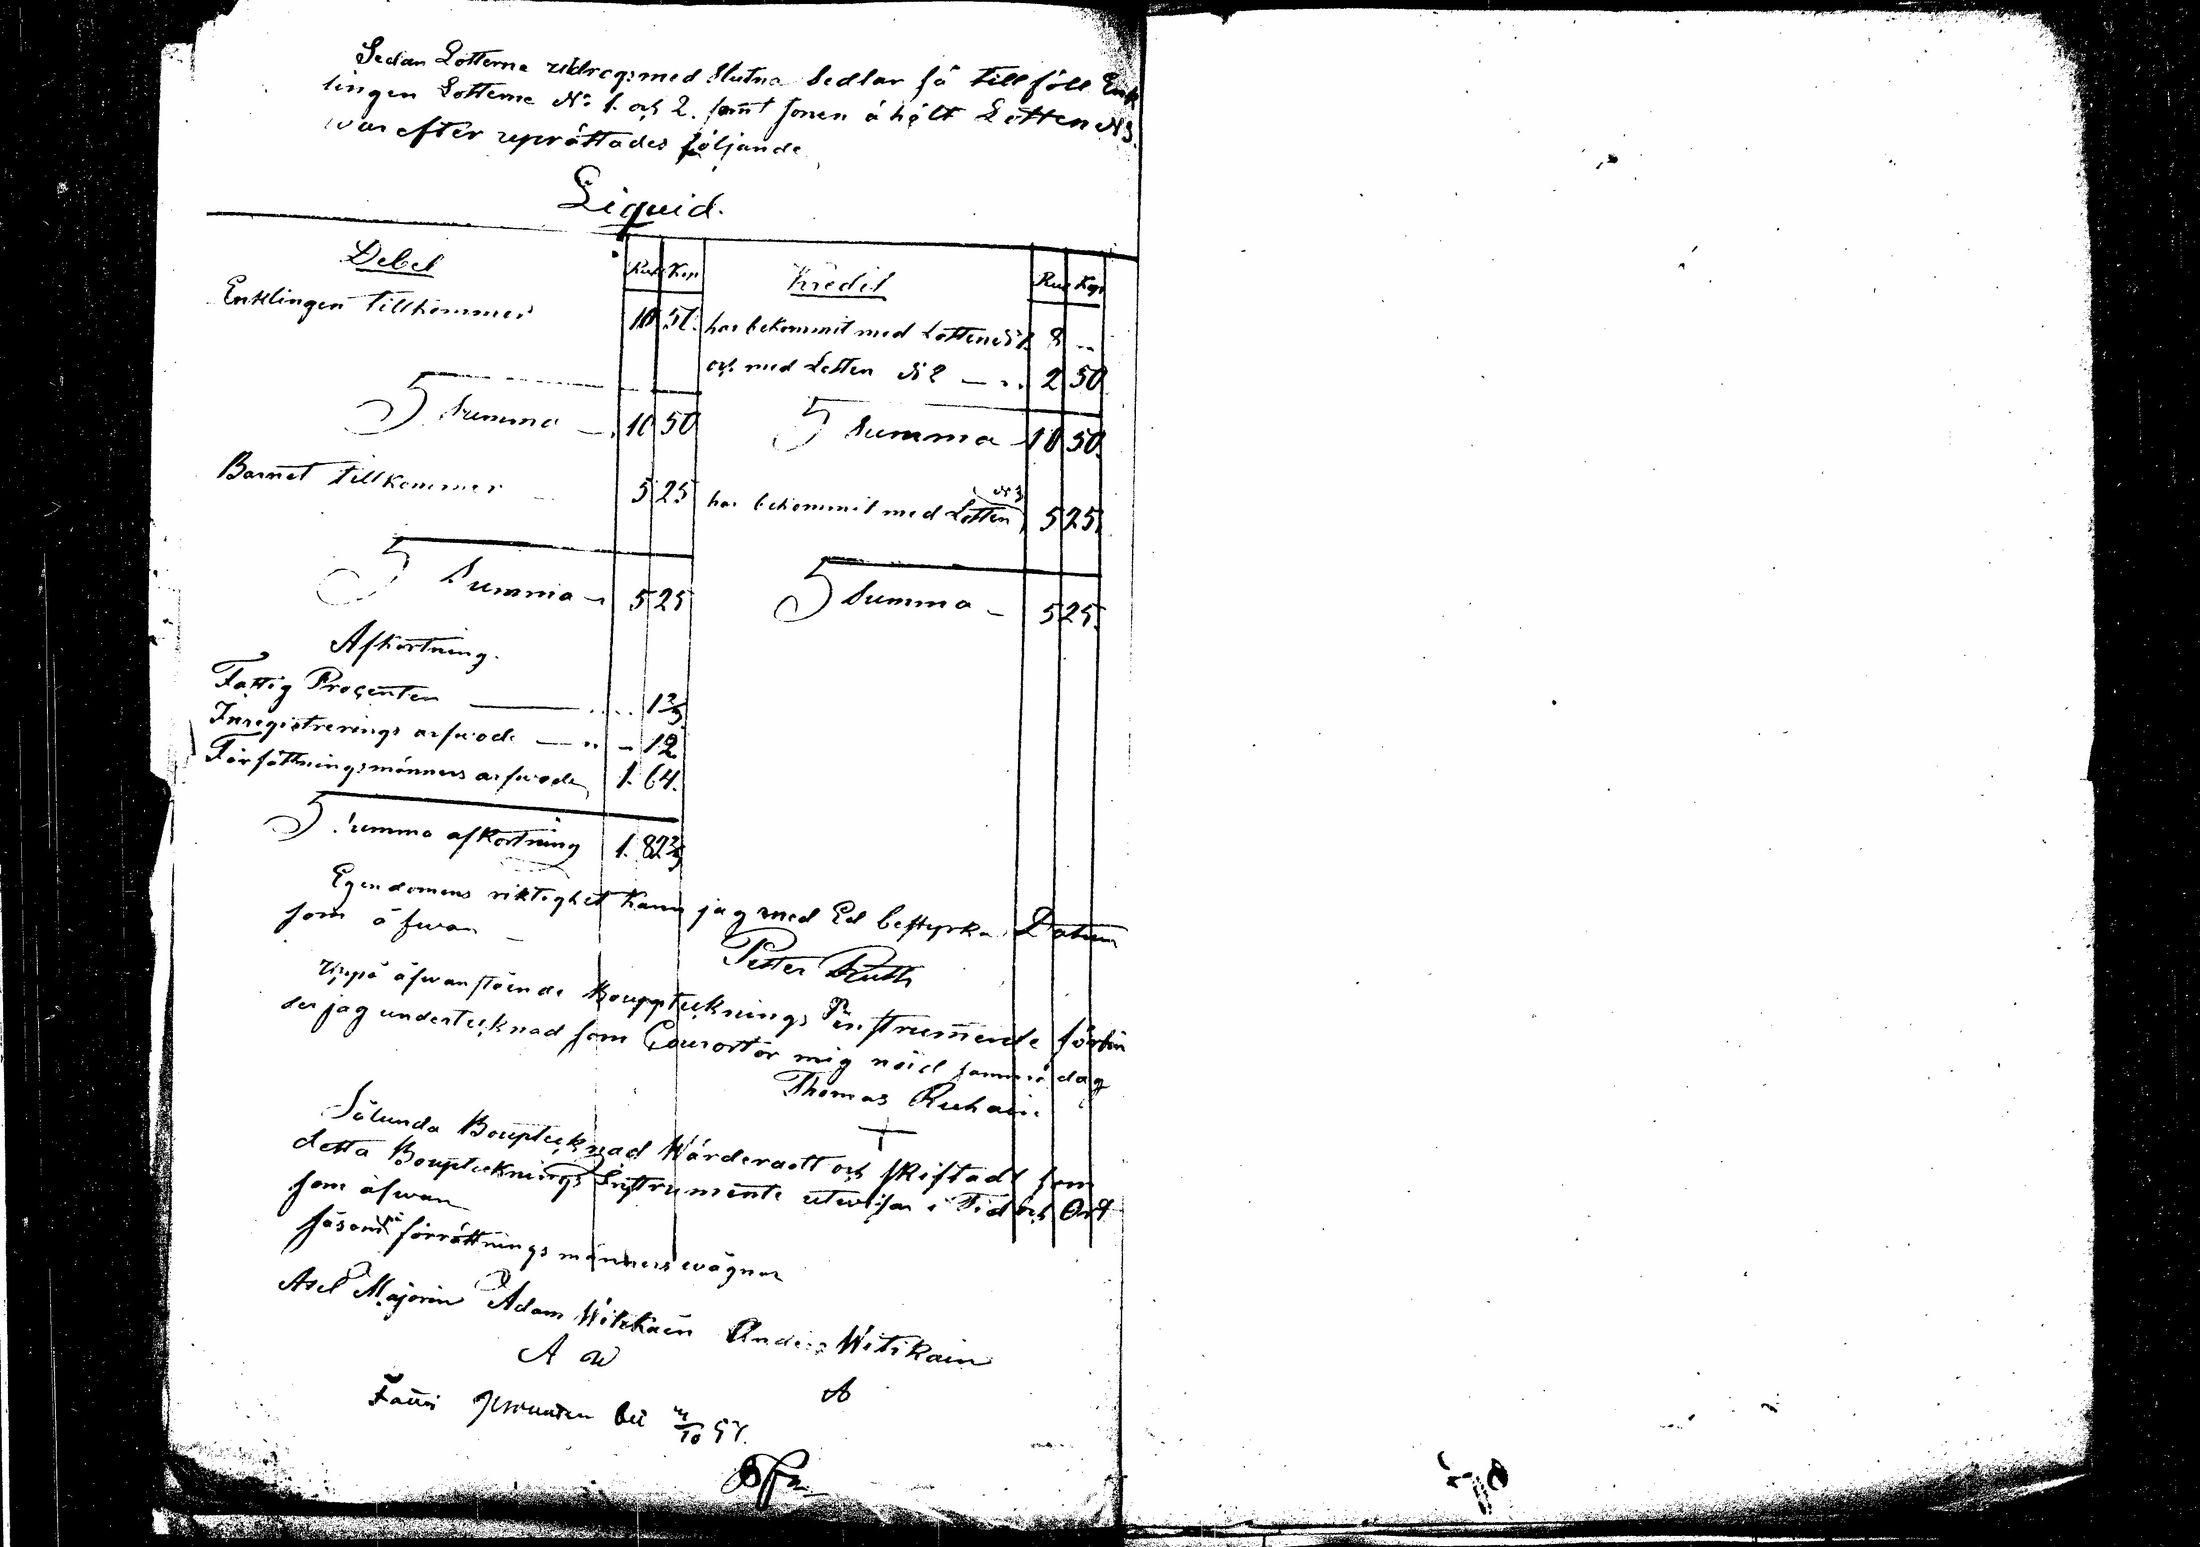 Sedan Lotterne utdrogs med slutna Sedlar så tillföll Enk
lingen Lotterne No 1. och 2. samt sonen åhölt Lotten N3.
var efter uprättades följande
Liquid.
Debet Rub Kop Kredit Rub Kop
Enklingen tillkommer 10 50. har bekommit med Lotten No 1. 8 --
och med Lotten N 2 — " 2 50
Summa — 10 50 Summa — 10 50.
Barnet tillkommer — 5 25 har bekommit med Lotten N 3 5 25.
Summa — 5 25 Summa — 5 25.
Afkortning.
Fattig Procenten — 1 2/3
Inregistrerings arfwode — " — 12
Förrättningsmänners arfwode 1. 64.
Summa afkortning 1. 82 2/3
Egendomens riktighet kann jag med Ed bestyrka Datum
som åfwan —
Petter Ruth
Uppå åfwanstående Boupptecknings Instrumente förbin
der jag undertecknad som Courator mig nöid samma dag
Thomas
+
Sålunda Bouptecknad Wårderadt och skiftadt som
detta Bouptecknings Instrumente utwisar i Tid och Ort
som åfwan
såsom på förrättnings männers wägnar
Axel Majorin Adam Witikain Anders Witikain
A W
A